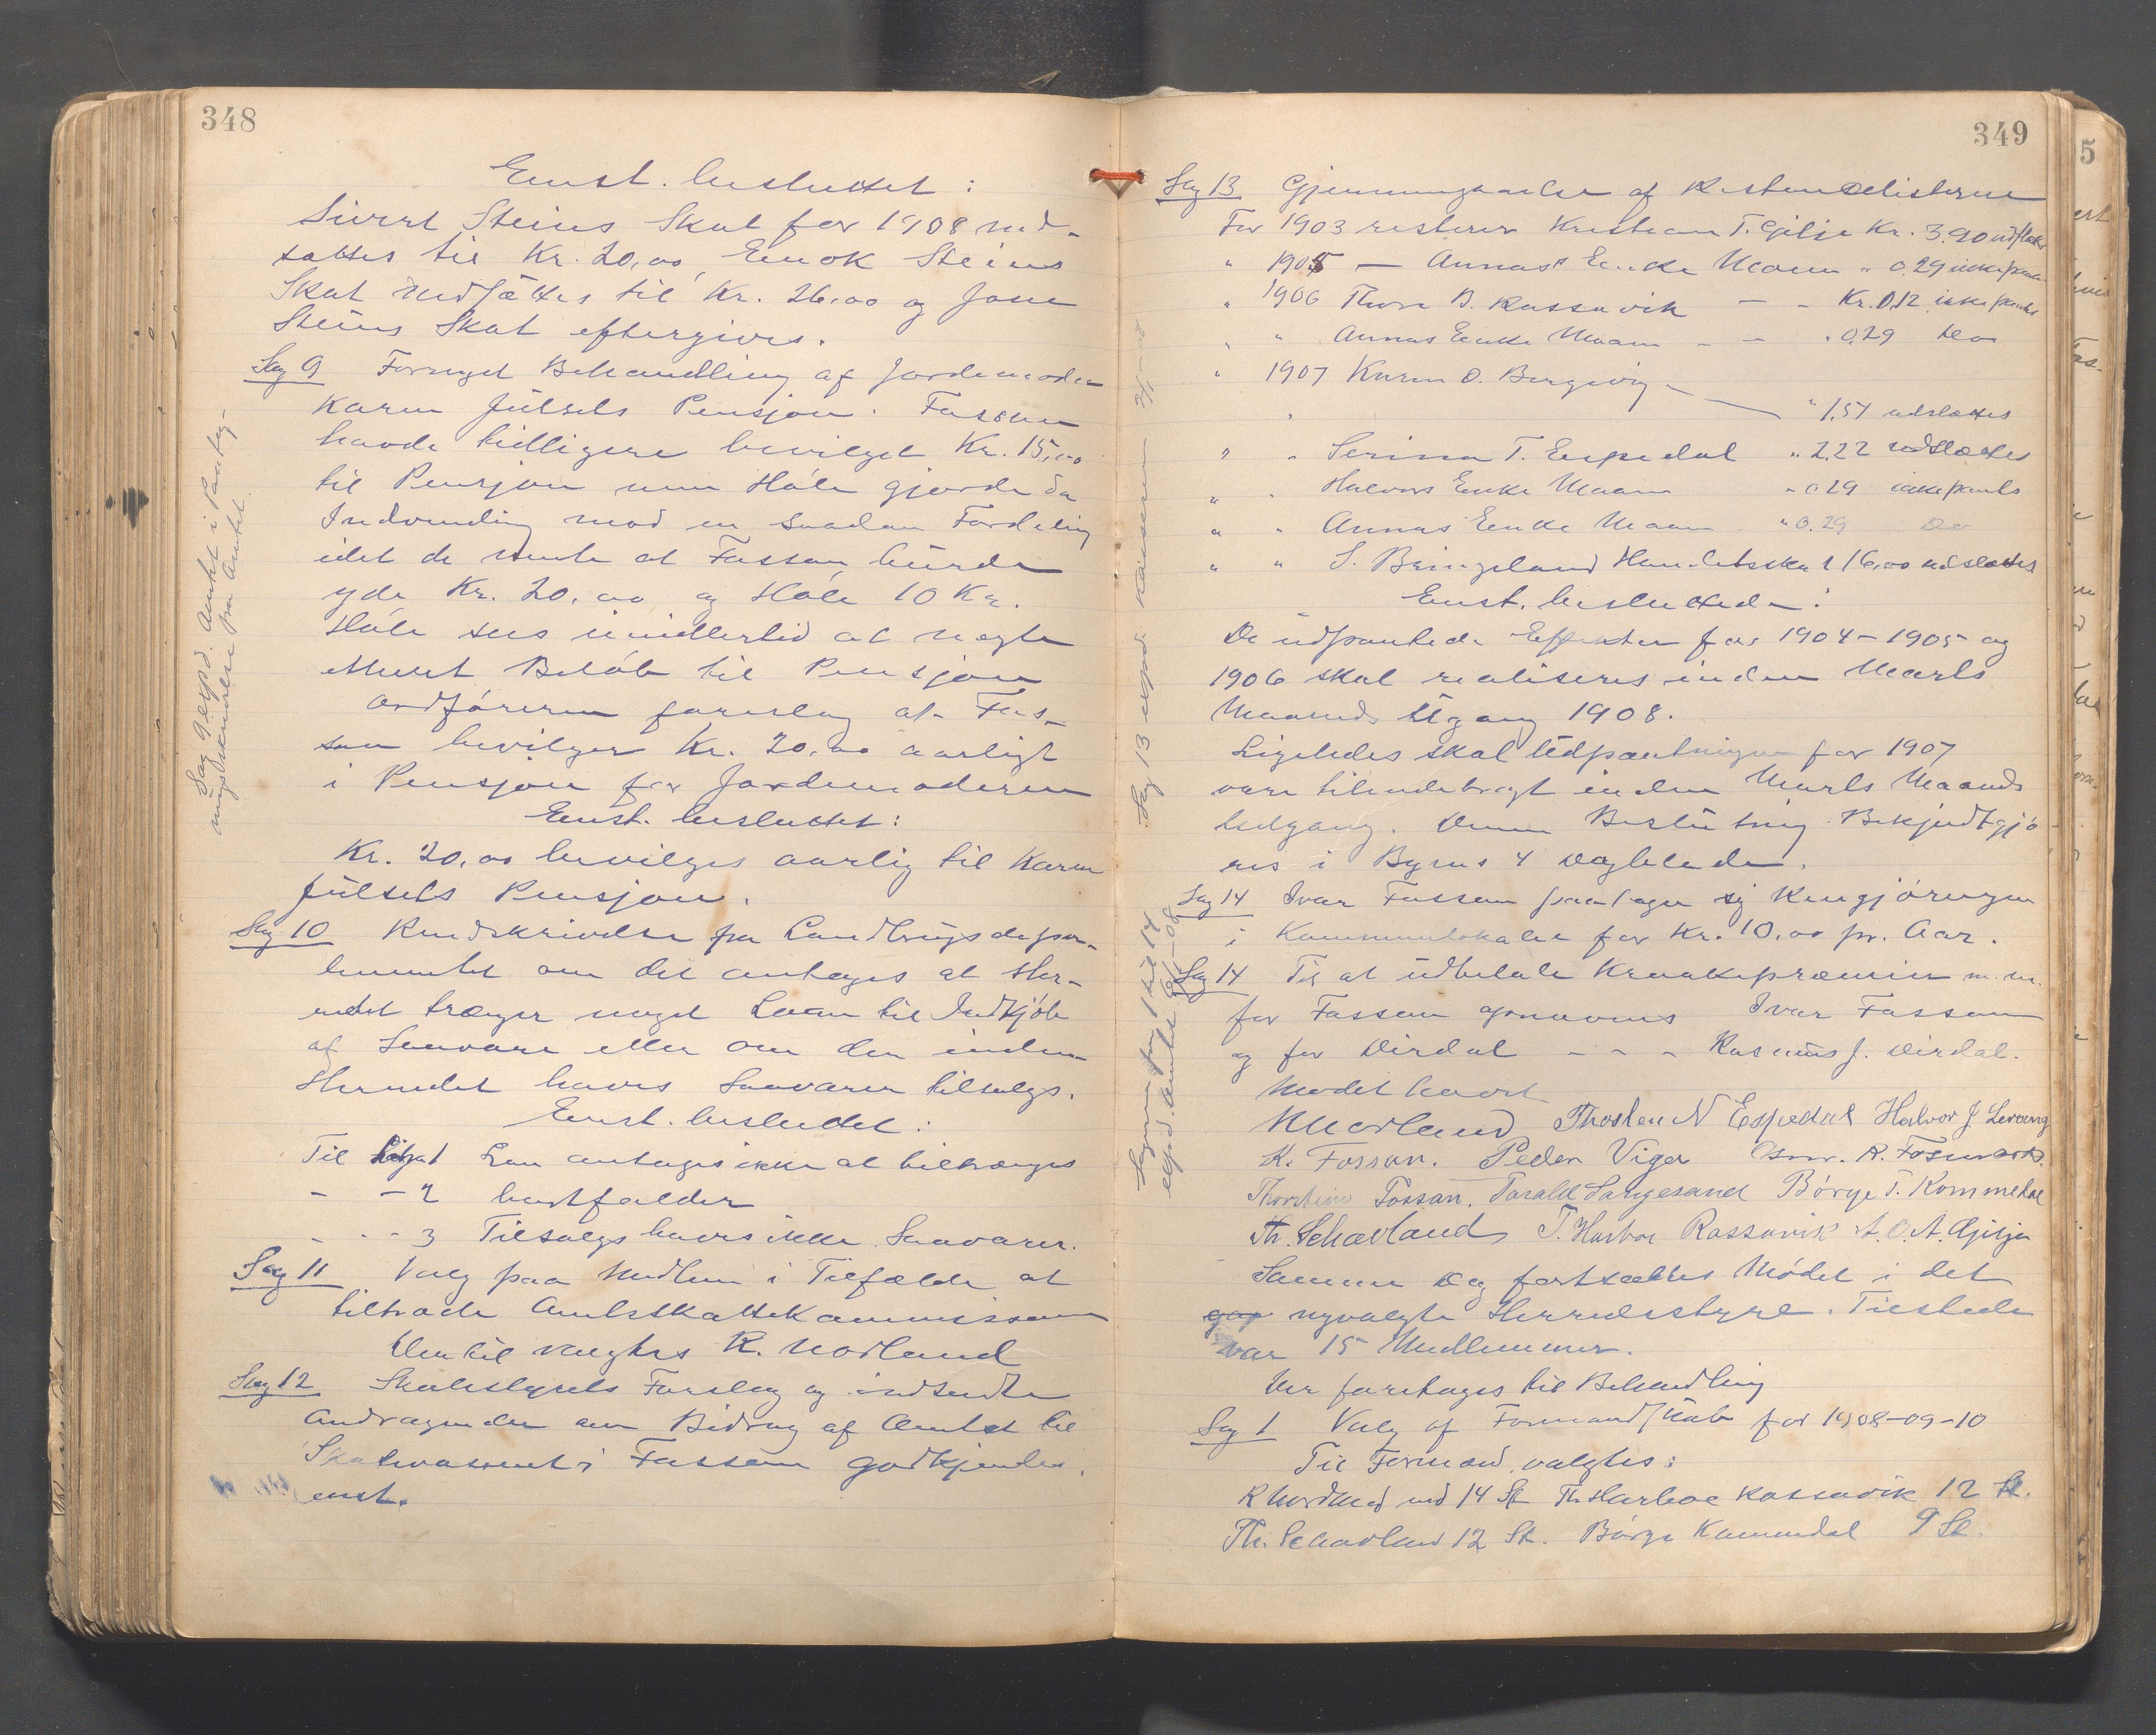 348
Enst. besluttet:
Sivert Steins Skat for 1908 ned-
sættes til Kr. 20,00, Enok Steins
Skat nedsættes til Kr. 26,00 og Jone
Steins Skat eftergives.
Sag 9 Fornyet Behandling af Jordemoder
Karen Jülsets Pensjon. Fossan
havde tidligere bevilget Kr. 15,00
til Pensjon men Høle gjorde da
Indvending mod en saadan Fordeling
idet de mente at Fossan burde
yde Kr. 20,00 og Høle 10 Kr.
Høle sees imidlertid at negte
ethvert Beløb til Pensjon
Ordføreren foreslog at Fos-
san bevilger Kr. 20,00 aarligt
i Pensjon for Jordemoderen
Enst. besluttet:
Kr. 20,00 bevilges aarlig til Karen
Jülsets Pensjon.
Sag 10 Rundskrivelse fra Landbrugsdepar-
tementet om det antages at Her-
redet trænger noget Laan til Indkjøb
af Saavare eller om der inden
Herredet haves Saavarer tilsalgs.
Enst. besluttet:
Til 1 Laan antages ikke at tiltrænges
- - 2 bortfalder
- - - 3 Tilsalgs haves ikke Saavarer.
Sag 11 Valg paa Medlem i Tilfælde at
tiltræde Amtsskattekommissionen
Der til valgtes R. Norland
Sag 12 Skolestyrets Forslag og indsendte
Andragender om Bidrag af Amtet til
Skolevæsenet i Fossan godkjendes
enst.
Sag 9 exp. Amtet i Pantteg-
ningskendelse fra Amtet
349
Sag 13 Gjennemgaaelse af Restancelisterne
For 1903 resterer Kristian T. Gilje Kr. 3.90 udslettes
" 1905 — Annas Enke Maan " 0.29 ikke pantes
" 1906 Thore B. Rossavik — - Kr. 0,12 ikke pantes
" " Annas Enke Maan - - " 0,29 Do
" 1907 Karen O. Bergevig
" — " 1,51 udslettes
" " Serina T. Espedal " 2.22 udslettes
" " Halvors Enke Maan " 0.29 ikke pantes
" " Annas Enke Maan " 0.29 Do
" " S. Bringeland Handelsskat 16,00 udslettes
Enst. besluttede:
De udpantede Effekter for 1904 - 1905 og
1906 skal realiseres inden Marts
Maaneds Udgang 1908.
Ligeledes skal Udpantningen for 1907
være tilendebragt inden Marts Maaneds
Udgang. Denne Beslutning Bekjendtgjø-
res i Byens 4 Dagblade.
Sag 14 Ivar Fossan paatager sig Rengjøringen
i Kommunelokalet for Kr. 10,00 pr. Aar.
Sag 14 Til at udbetale Kraakepræmier m. m.
for Fossan opnævnes Ivar Fossan
og for Dirdal - - - Rasmus J. Dirdal.
Mødet hævet
Thosten N Espedal Halvor J Levang
K. Fossan. Peder Viger R. Fosmark.
Thorstein Fossan. Torald Sørgesand Børge T. Kommedal
Th. Schavland T. Harboe Rossavik A. O. A. Gilje
Samme Dag fortsattes Mødet i det
nyvalgte Herredsstyre. Tilstede
var 15 Medlemmer.
Der foretages til Behandling
Sag 1 Valg af Formandskab for 1908-09-10
Til Formænd valgtes:
R Nordland med 14 St Th. Harboe Rossavik 12 St.
Th. Schavland 12 St. Børge Kommedal 9 St.
Sag 13 exp. Kasserer
Sagerne fra 1 til 14
exp. Amtet -08
5